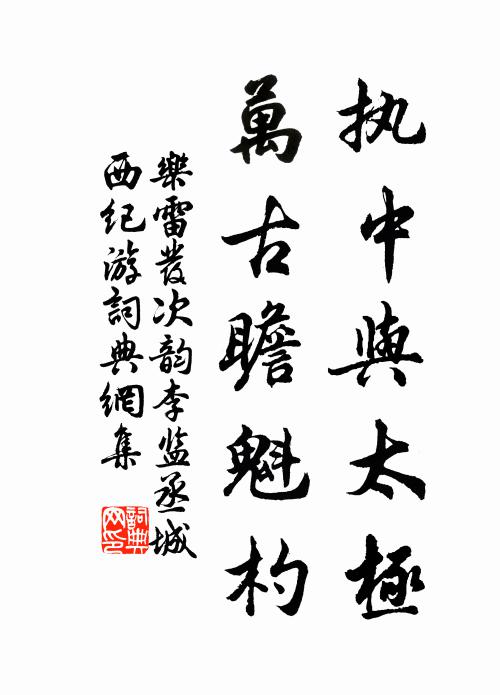 执中與太極
萬古瞻魁杓
樂雷發次韵李监丞城
西纪游詞典網集
詞典网印